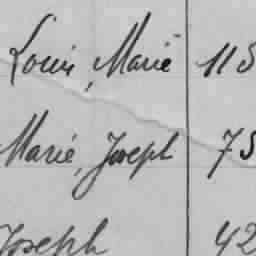 Louis, Marie 115
Marié, Joseph 75
Joseph 42